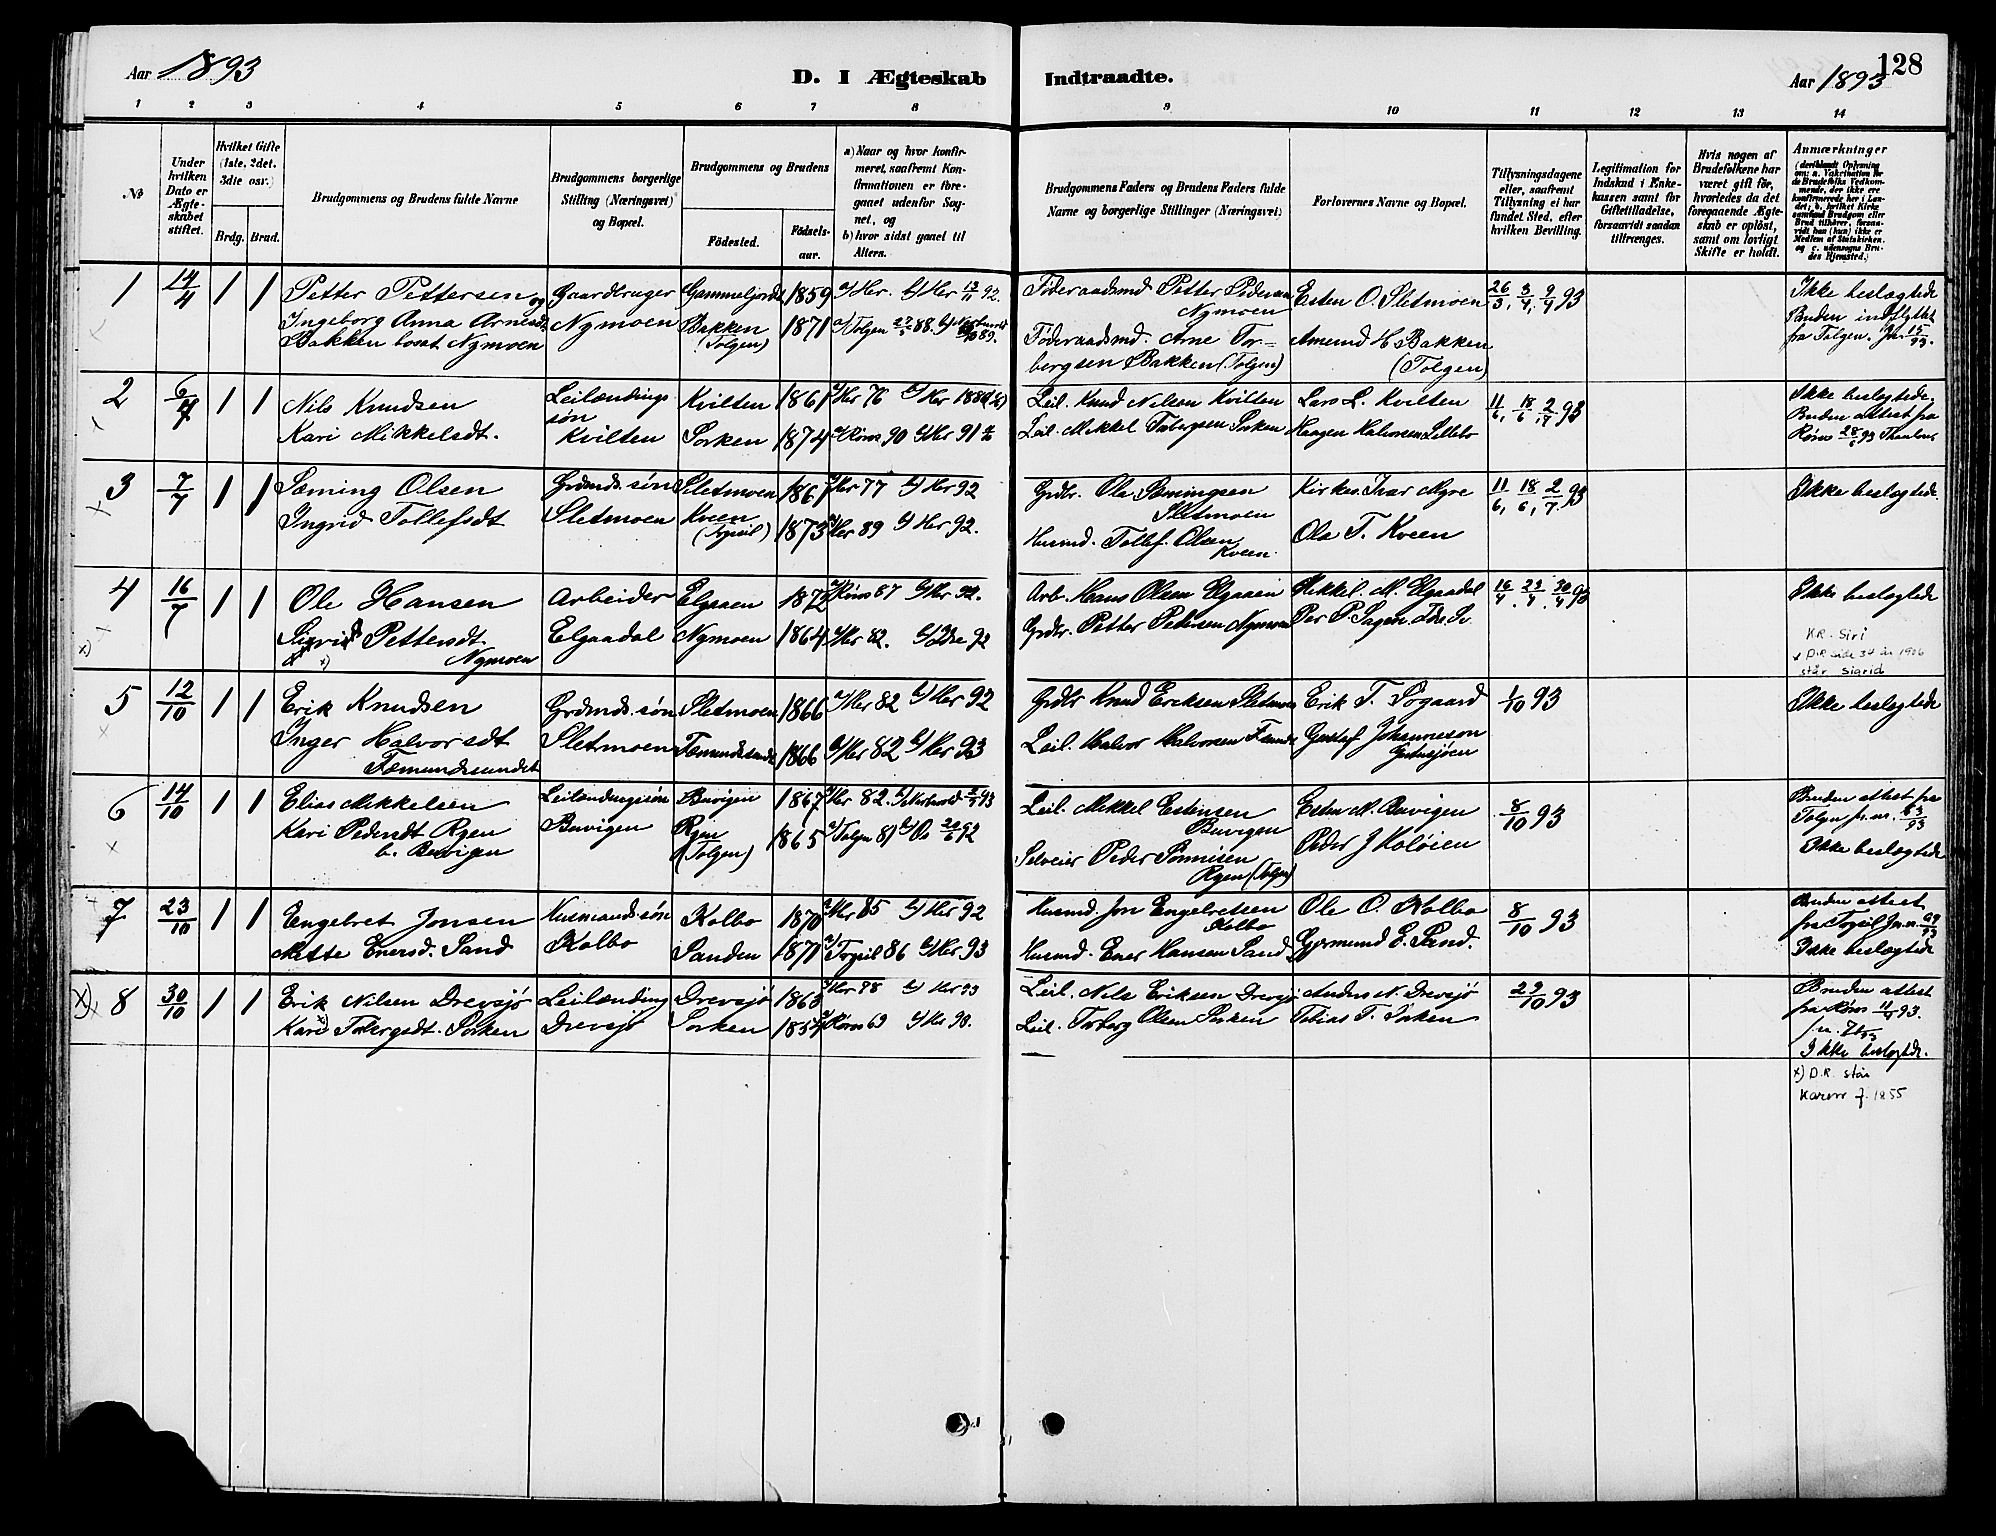 Aar 1893
D. I Ægteskab Indtraadte.
Aar 1893
128
1 2 3 4 5 6 7 8 9 10 11 12 13 14
№
Under hvilken Dato er Ægteskabet stiftet.
Hvilket Gifte (1ste, 2det, 3die osv.)
Brdg. Brud.
Brudgommens og Brudens fulde Navne
Brudgommens borgerlige Stilling (Næringsvei) og Bopæl.
Brudgommens og Brudens
Fødested.
Fødselsaar.
a) Naar og hvor konfirmeret, saafremt Konfirmationen er foregaaet udenfor Sognet, og
b) hvor sidst gaaet til Alters.
Brudgommens Faders og Brudens Faders fulde Navne og borgerlige Stillinger (Næringsvei)
Forlovernes Navne og Bopæl.
Tillysningsdagene eller, saafremt Tillysning ei har fundet Sted, efter hvilken Bevilling.
Legitimation for Indskud i Enkekassen samt for Giftetilladelse, forsaavidt saadan tiltrænges.
Hvis nogen af Brudefolkene har været gift før, hvorledes da det foregaaende Ægteskab er opløst, samt om lovligt Skifte er holdt.
Anmærkninger
1 14/4 1 1 Petter Pettersen og Gaardbruger 1859 a/ Her. b/ Her 13/11 92. Føderaadsmd Petter Pedersen Esten O. Sletmoen 26/3, 3/4, 9/4 93 Ikke beslægtede
Nymoen
Ingeborg Anna Arnesdt Nymoen Bakken 1871 a/ Tolgen 27/5 88. Føderaadsmd. Arne Tor- Amund H Bakken Bruden indflyttet
Bakken bosat Nymoen (Tolgen) bergsen Bakken (Tolgen) (Tolgen) fra Tolgen. 15/93.
2 6/7 1 1 Nils Knudsen Leilændings søn Kvilten 1861 a/ Her 76 b/ Her Leil. Knud Nilsen Kvilten Lars L. Kvilten 11/6, 18/6, 2/7 93 Ikke beslægtede.
Kari Mikkelsdt. Kvilten Sorken 1874 a/ Røros 90 b/ Her 91 Leil. Mikkel Torbergsen Sorken Haagen Halvorsen Lillebo Bruden attest fra
Røros 28/6 93
3 7/7 1 1 Sæming Olsen Grdmds. søn Sletmoen 1867 a/ Her 77 b/ Her 92 Grdbr. Ole Sæmingsen Kirkes. Ivar Myre 11/6, 18/6, 2/7 93 Ikke beslægtede
Sletmoen
Ingrid Tollefsdt Sletmoen Kveen 1873 a/ Her 89 b/ Her 92. Husmd. Tollef Olsen Ola T. Kveen
(Trysil) Kveen
4 16/7 1 1 Ole Hansen Arbeider Elgaaen 1872 a/ Røros 87 b/ Her 92. Arb. Hans Olsen Elgaaen Mikkel M. Elgaadal 16/4. 23/4. 30/4 93 Ikke beslægtede
Sigrid Pettersdt. Elgaadal Nymoen 1864 a/ Her 82. 92 Grdbr. Petter Pedersen Nymoen Per P. Sagen
x) Nymoen
KR. Siri
x D.R side 34 år 1906
står Sigrid
5 12/10 1 1 Erik Knudsen Grdmds. søn Sletmoen 1866 a/ Her 82 b/ Her 92 Grdbr Knud Eriksen Sletmoen Erik T. Søgaard 1/10 93 Ikke beslægtede
Inger Halvorsdt Sletmoen Fæmundsunde 1866 a/ Her 82 b/ Her 93 Leil. Halvor Halvorsen Gustaf Johanneson
Fæmundsundet
6 14/10 1 1 Elias Mikkelsen Leilændingssøn Buvigen 1867 a/ Her 82. b/ 93 Leil. Mikkel Estensen Esten M. Buvigen 8/10 93 Bruden attest fra
Buvigen
Kari Pedersdt Rgen Buvigen Rgen 1865 a/ Tolgen 81 b/ Os 20/6 92 Selveier Peder Peder J Koløien Tolgen
b. Buvigen (Tolgen) Rgen (Tolgen) Ikke beslægtede
7 23/10 1 1 Engebret Jonsen Husmandssøn Kolbo 1870 a/ Her 85 b/ Her 92 Husmd Jon Engebretsen Ole O. Kolbo 8/10 93 Bruden attest
Kolbo
Mette Enersd. Sand Kolbo Sanden 1871 a/ Trysil 86 b/ Her 93 Husmd. Ener Hansen Sand Gjermund E. Sand. fra Trysil
Ikke beslægtede
x) 8 30/10 1 1 Erik Nilsen Drevsjø Leilænding Drevsjø 1863 a/ Her 78 b/ Her 93 Leil. Nils Eriksen Drevsjø Anders N. Drevsjø 29/10 93 Bruden attest
Kari Torbergsdt. Sorken Drevsjø Sorken a/ Røros 69 b/ Her 90. Leil. Torberg Olsen Sorken Tobias T. Sorken fra Røros 93.
Ikke beslægtede.
x) D.R. står
Karen f. 1855